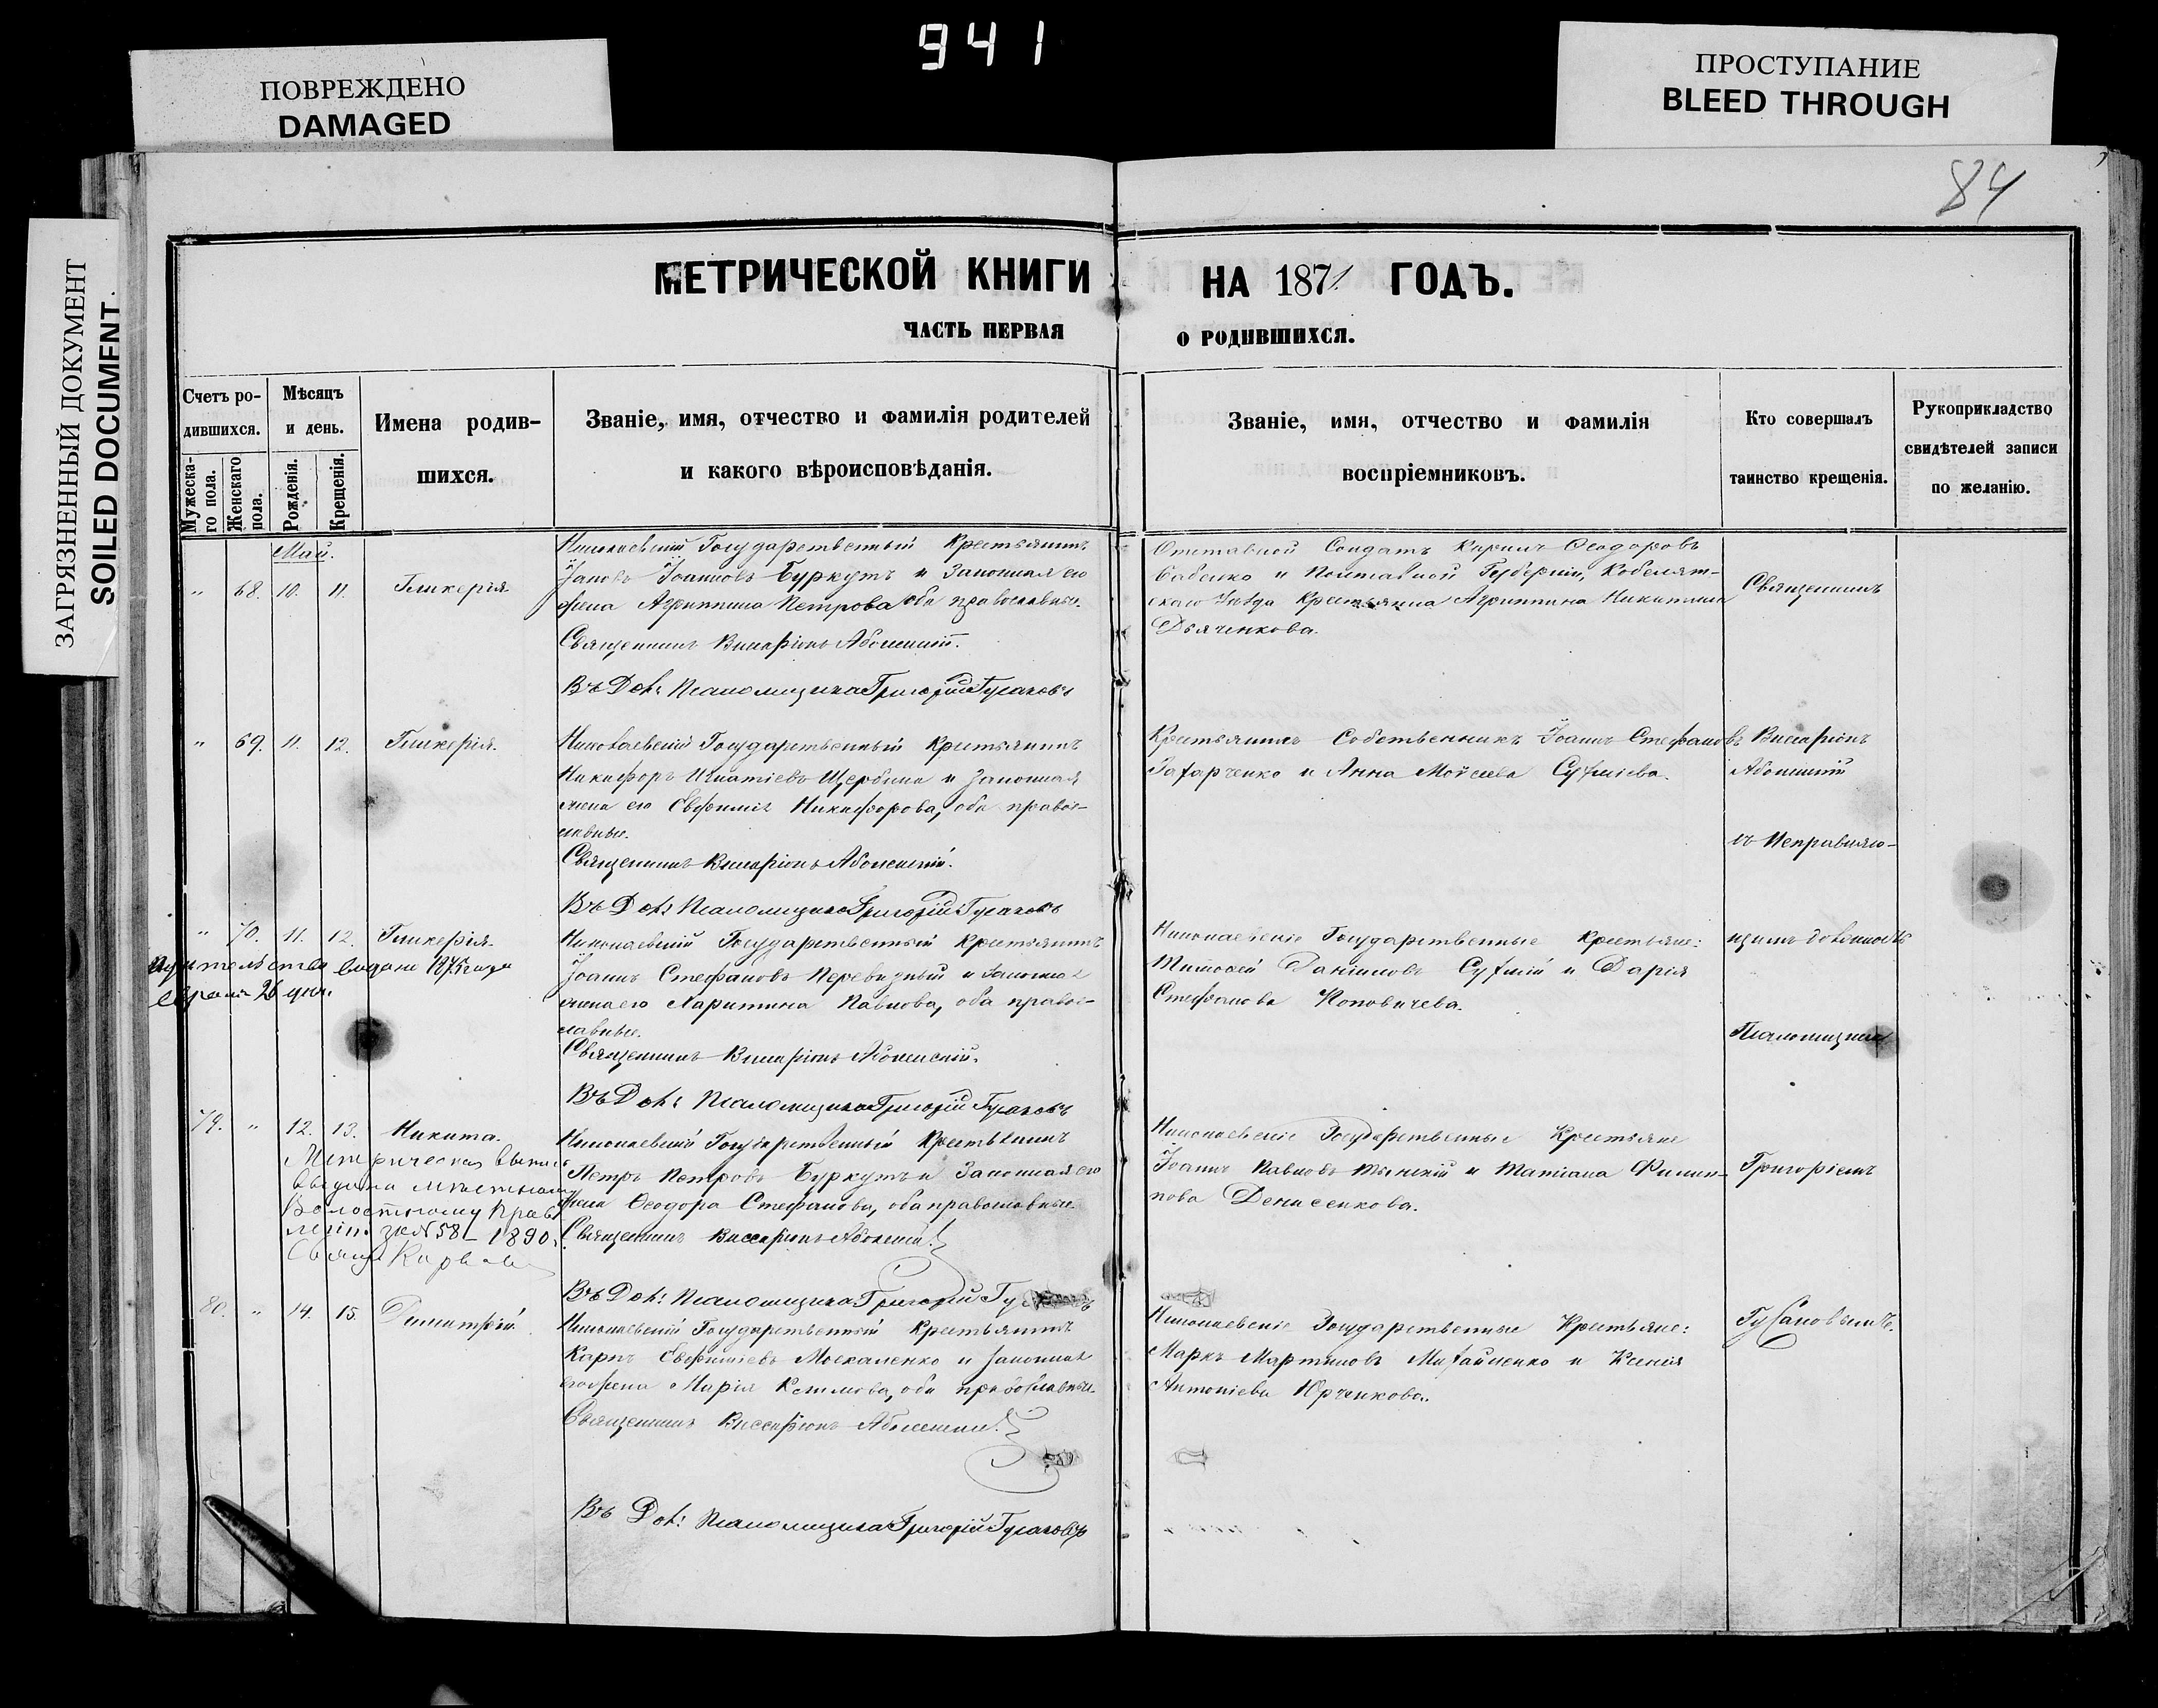 941
ПОВРЕЖДЕНО
DAMAGED
ПРОСТУПАНИЕ
BLEED THROUGH
ЗАГРЯЗНЕННЫЙ ДОКУМЕНТ
SOILED DOCUMENT
84
МЕТРИЧЕСКОЙ КНИГИ НА 1871 ГОДЪ.
ЧАСТЬ ПЕРВАЯ О РОДИВШИХСЯ.
Счетъ ро-
дившихся.
Мужеска-
го пола.
Женскаго
пола.
Мѣсяцъ
и день.
Рожденія.
Крещенія.
Имена родив-
шихся.
Званіе, имя, отчество и фамилія родителей
и какого вѣроисповѣданія.
Званіе, имя, отчество и фамилія
воспріемниковъ.
Кто совершалъ
таинство крещенія.
Рукоприкладство
свидѣтелей записи
по желанію.
Май.
" 68. 10. 11. Гликерія
Николаевскій Государственный Крестьянинъ
Іоанновъ Буркутъ и Законная его
жена Агриппина Петрова оба православные.
Священникъ Виссаріонъ
Въ Дол: Псаломщика Григорій Гусаковъ
Отставной Солдатъ Кириллъ Ѳеодоровъ
Бабенко и Полтавской Губерніи, Кобеляк-
скаго Уѣзда Крестьянка Агриппина Никитина
Дьяченкова.
Священникъ
" 69. 11. 12. Гликерія.
Николаевскій Государственный Крестьянинъ
Никифоръ Игнатіевъ Щербина и Законная
жена его Евфимія Никифорова, оба право-
славные.
Священникъ Виссаріонъ
Въ Дол: Псаломщика Григорій Гусаковъ
Крестьянинъ Собственникъ Іоаннъ Стефановъ
Захарченко и Анна Моѵсеева
Виссаріонъ
съ Исправляю-
" 70. 11. 12. Гликерія.
выдано 1875 года
26 дня.
Николаевскій Государственный Крестьянинъ
Іоаннъ Стефановъ и Законная
жена его Харитина Павлова, оба право-
славные.
Священникъ Виссаріонъ
Въ Дол: Псаломщика Григорій Гусаковъ
Николаевскіе Государственные Крестьяне:
Тимоѳей Даніиловъ и Дарія
Стефанова
щимъ должность
Псаломщика
79. " 12. 13. Никита.
Метрическая выпись
выдана мѣстному
Волостному Прав
за № 58 – 1890
Николаевскій Государственный Крестьянинъ
Петръ Петровъ Буркутъ и Законная его
жена Ѳеодора Стефанова, оба православные.
Священникъ Виссаріонъ
Въ Дол: Псаломщика Григорій
Николаевскіе Государственные Крестьяне
Іоаннъ Павловъ и Татіана Филип-
пова Денисенкова.
Григоріемъ
80. " 14. 15. Димитрій.
Николаевскій Государственный Крестьянинъ
Карпъ Евфиміевъ Москаленко и Законная
его жена Марія оба православные.
Священникъ Виссаріонъ
Въ Дол: Псаломщика Григорій Гусаковъ
Николаевскіе Государственные Крестьяне:
Маркъ Мартиновъ Михайленко и Ксенія
Антоніева Юрченкова.
Гусаковымъ.